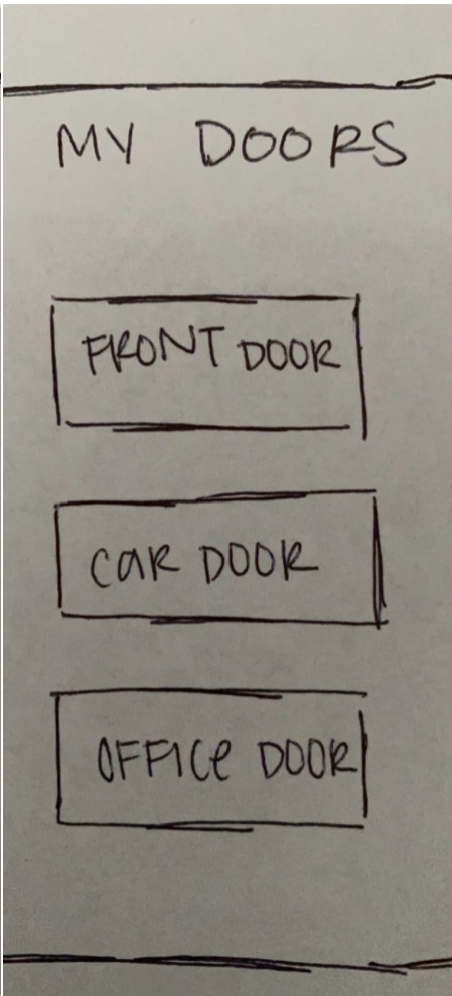 MY DOORS
FRONT DOOR
CAR DOOR
OFFICE DOOR